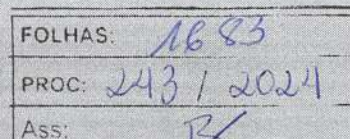 FOLHAS: 1683
PROC: 243 / 2024
Ass: